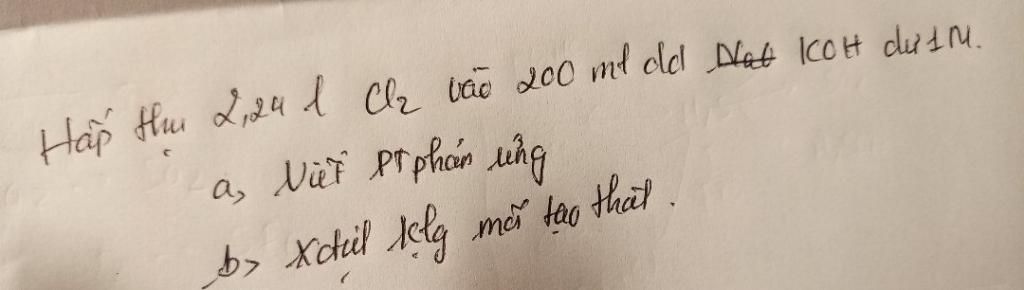 Hấp thụ 2,24 l Cl2 vào 200 ml dd KOH dư 1M.
a, Viết PT phản ứng
b> Xđịnh klg muối tạo thành.